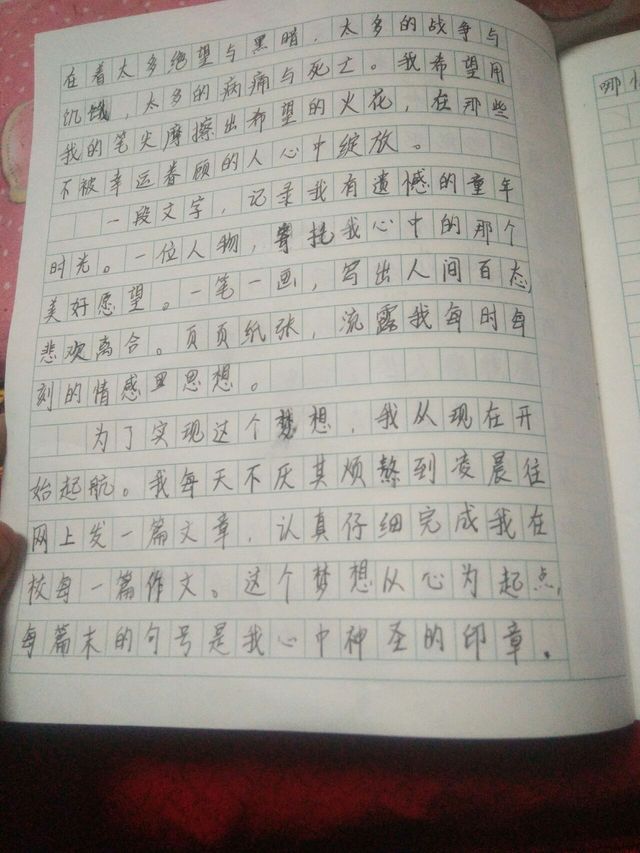 在着太多绝望与黑暗，太多的战争与
饥饿，太多的病痛与死亡。我希望用
我的笔尖摩擦出希望的火花，在那些
不被幸运眷顾的人心中绽放。
一段文字，记录我有遗憾的童年
时光。一位人物，寄托我心中的那个
美好愿望。一笔一画，写出人间百态，
悲欢离合。页页纸张，流露我每时每
刻的情感里思想。
为了实现这个梦想，我从现在开
始起航。我每天不厌其烦熬到凌晨往
网上发一篇文章，认真仔细完成我在
校每一篇作文。这个梦想从心为起点，
每篇末的句号是我心中神圣的印章。
哪